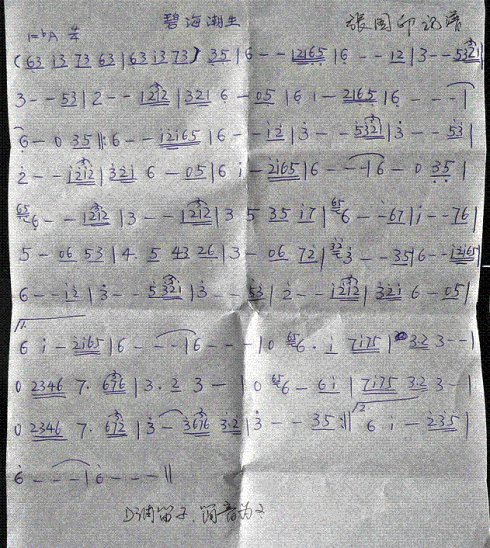 碧海潮生
1=bA
(63 13 73 63 | 63 13 73) 35 | 6 - - 12165 | 6 - - 12 | 3 - - 5321 |
3 - - 53 | 2 - - 1212 | 321 6 - 05 | 6 i - 2165 | 6 - - - |
6 - 0 35 ||: 6 - - i2i65 | 6 - - i2 | 3 - - 5321 | 3 - - 53 |
2 - - i2i2 | 321 6 - 05 | 6 i - 2i65 | 6 - - - | 6 - 0 35 |
65 6 - - 1212 | 3 - - 1212 | 3 5 35 i7 | 65 6 - - 67 | i - - 76 |
5 - 06 53 | 4. 5 43 26 | 3 - 06 72 | 3 - - 35 | 6 - - i2i65 |
6 - - i2 | 3 - - 5321 | 3 - - 53 | 2 - - i2i2 | 321 6 - 05 |
6 i - 2i65 | 6 - - - | 6 - - - | 0 65 6 . i 7i75 | 3.2 3 - - |
0 2346 7. 676 | 3. 2 3 - | 0 65 6 - 6i | 7i75 3.2 3 - |
0 2346 7. 672 | 3 - 3676 3.2 | 3 - - 35 :|| 2 6 i - 235 |
6 - - - | 6 - - - ||
D调笛子,筒音为2